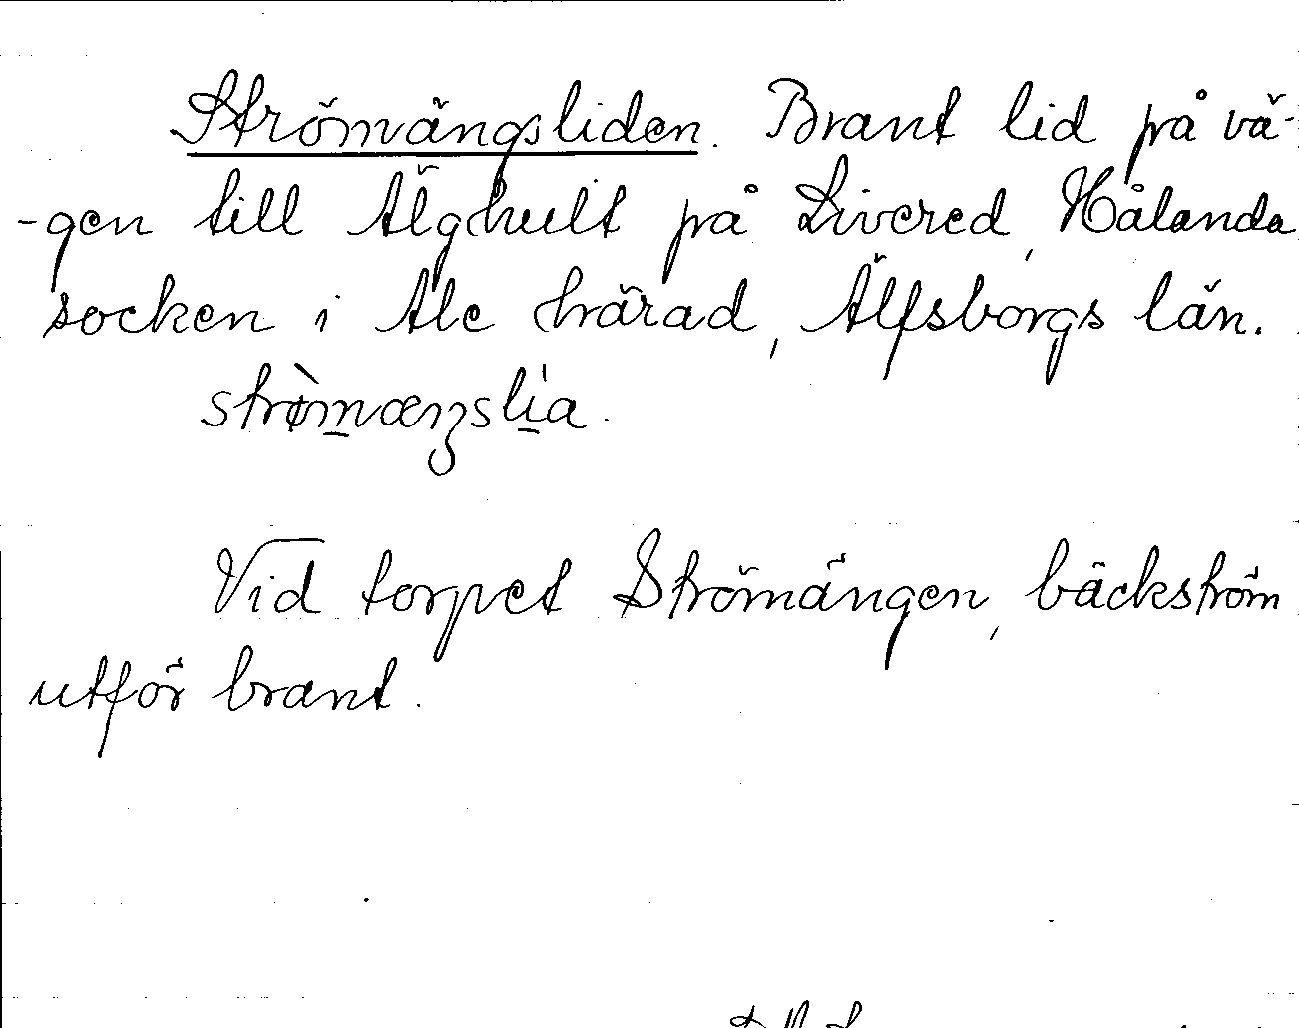 Strömängsliden. Brant lid på vä-
-gen till Älghult på Livered, Hålanda
socken i Ale härad, Älfsborgs län.
strömængslia.
Vid torpet Strömängen, bäckström
utför brant.